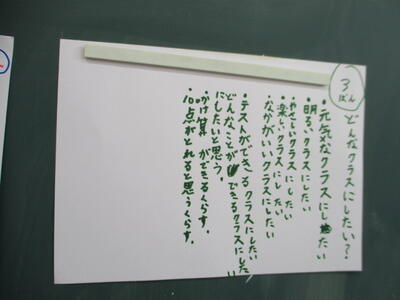 3ぱん
どんなクラスにしたい?
・元気なクラスにしたい
・明るいクラスにしたい
・やさしいクラスにしたい
・楽しいクラスにしたい
・なかがいいクラスにしたい
・テストができるクラスにしたい
どんなことができるクラスにした
にしたいと思う。
・かけ算ができるくらす。
・10点がとれると思うくらす。